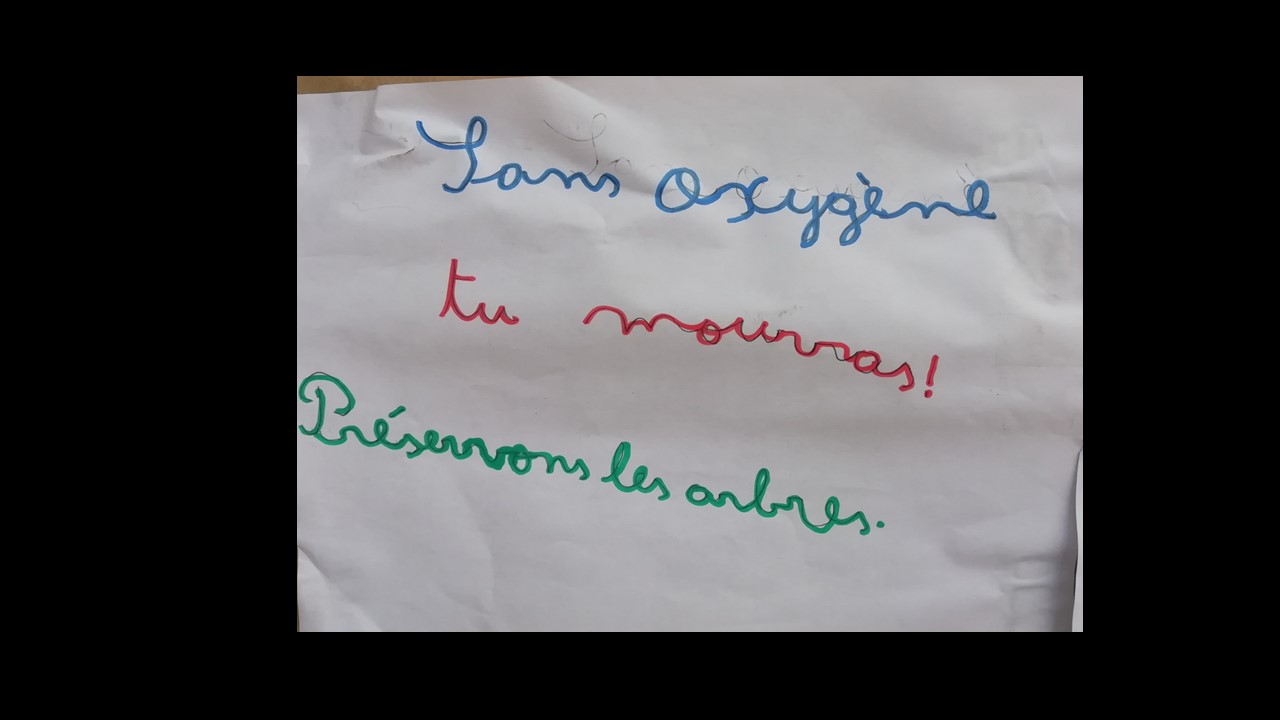 Sans oxygène
tu mourras!
Préservons les arbres.